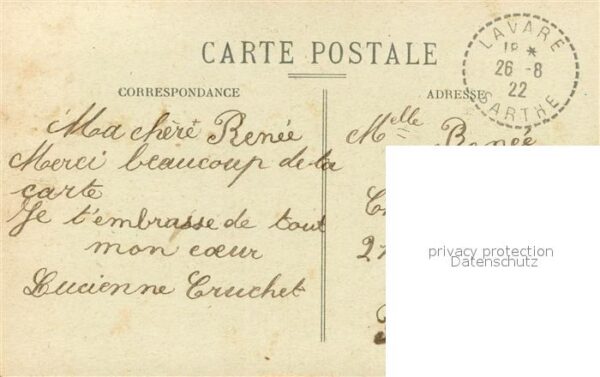 CARTE POSTALE
CORRESPONDANCE
Ma chère Renée
Merci beaucoup de ta
carte
Je t'embrasse de tout
mon cœur
Lucienne Cruchet
ADRESSE
Melle Renée
27
LAVARE
18 *
26 -8
22
SARTHE
privacy protection
Datenschutz